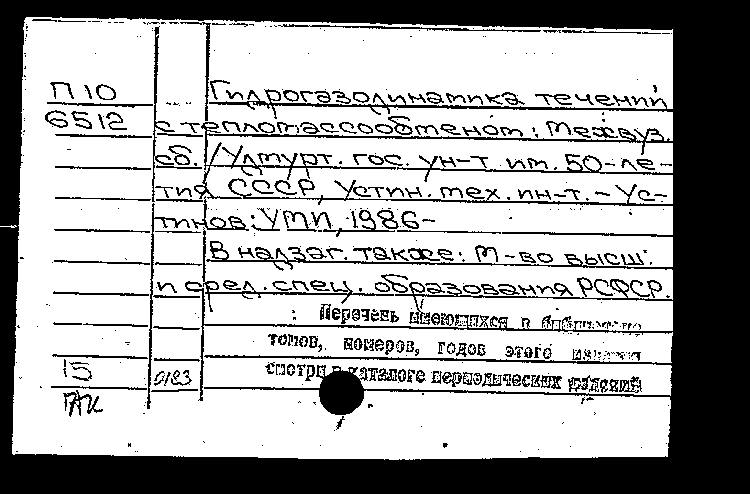 П 10 Гидрогазодинамика течений
6512 с тепломассообменом: Межвуз.
сб. / Удмурт. гос. ун-т им. 50-ле-
тия СССР, Устин. мех. ин-т. - Ус-
тинов: УМИ, 1986-
В надзаг. также: М-во высш.
и сред. спец. образования РСФСР.
Перечень имеющихся в библиотеке
томов, номеров, годов этого издания
15 0183 смотри в каталоге периодических изданий
ГАК